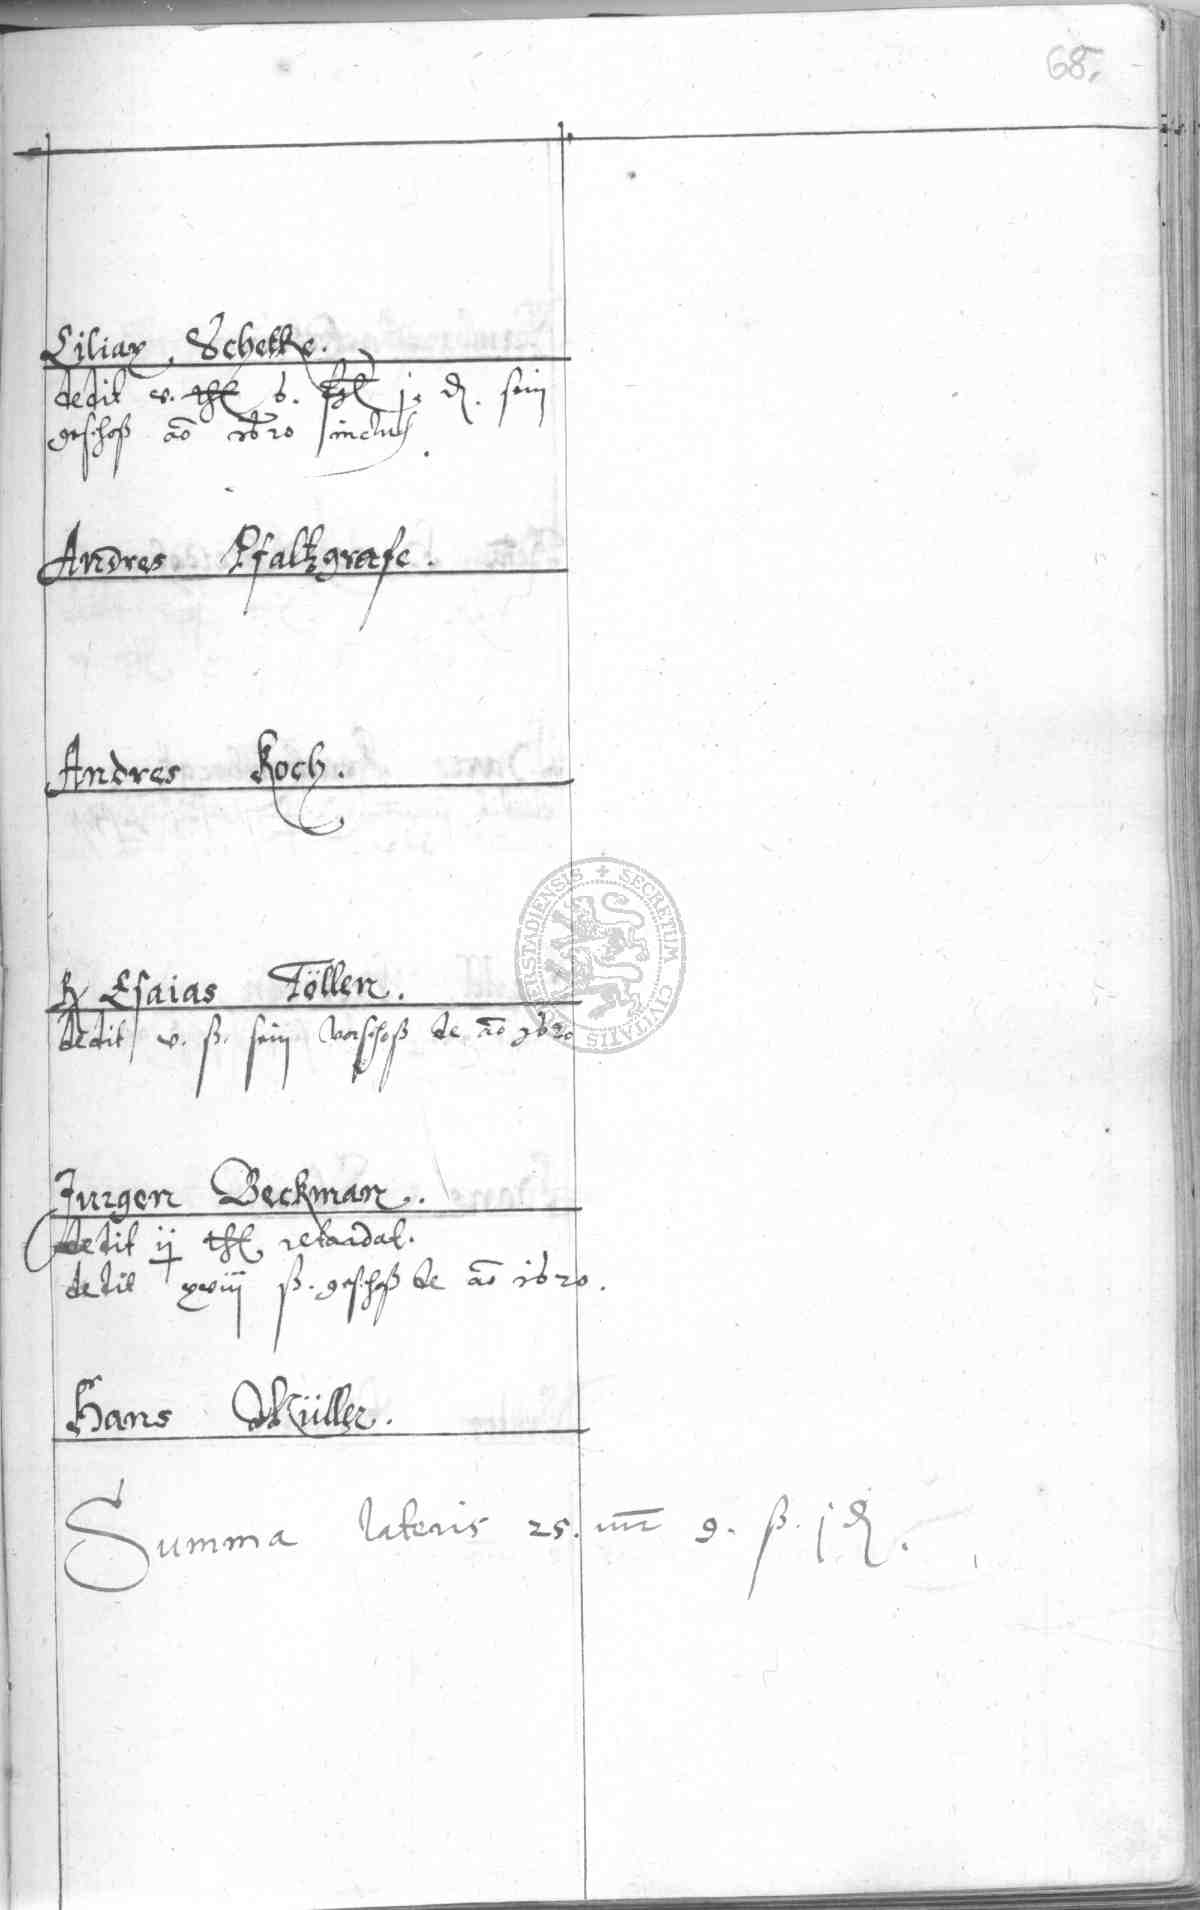 68.
Ciliax Schetke.
dedit v. thl 6. ß j. ₰. sein
geschoß aō 1620 inclus.
Andres Pfaltzgrafe.
Andres Koch.
SECRETUM CIVITATIS DUDERSTADIENSIS
Esaias Töllen.
dedit v. ß. sein vorschoß de aō 1620
Jurgen Beckman.
dedit ij thl. retardat.
dedit xviij ß. geschoß de aō 1620.
Hans Müller.
Summa lateris 25. 9. ß. j ₰.